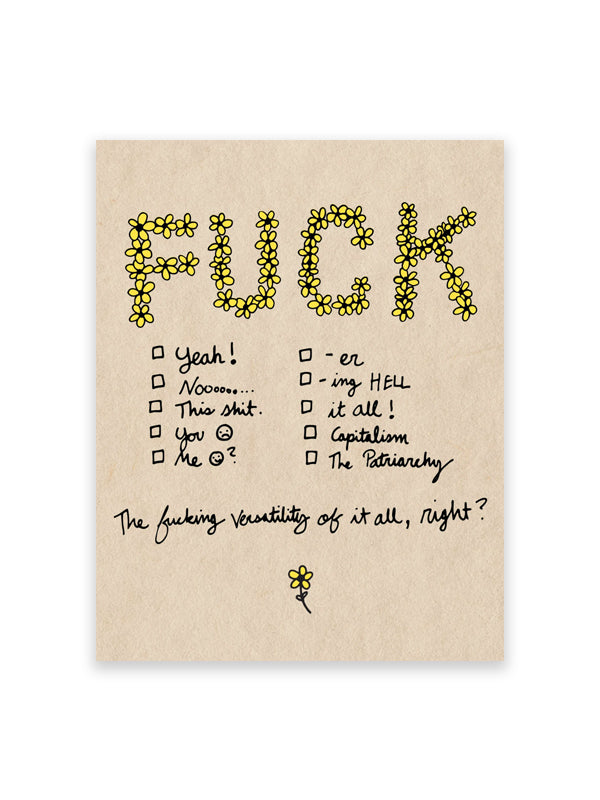 FUCK
☐ Yeah!
☐ Noooo.....
☐ This shit.
☐ You ☹
☐ Me 😉?
☐ -er
☐ -ing HELL
☐ it all!
☐ Capitalism
☐ The Patriarchy
The fucking versatility of it all, right?